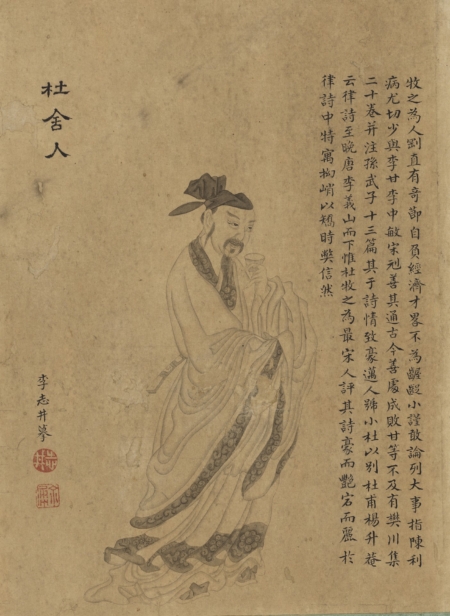 牧之為人剛直有奇節自負經濟才畧不為齪齪小謹敢論列大事指陳利
病尤切少與李甘李中敏宋邧善其通古今善處成敗甘等不及有樊川集
二十卷并注孫武子十三篇其于詩情致豪邁人號小杜以別杜甫楊升菴
云律詩至晚唐李義山而下惟杜牧之為最宋人評其詩豪而艷宕而麗於
律詩中特寓拗峭以矯時弊信然
杜舍人
李志井摹